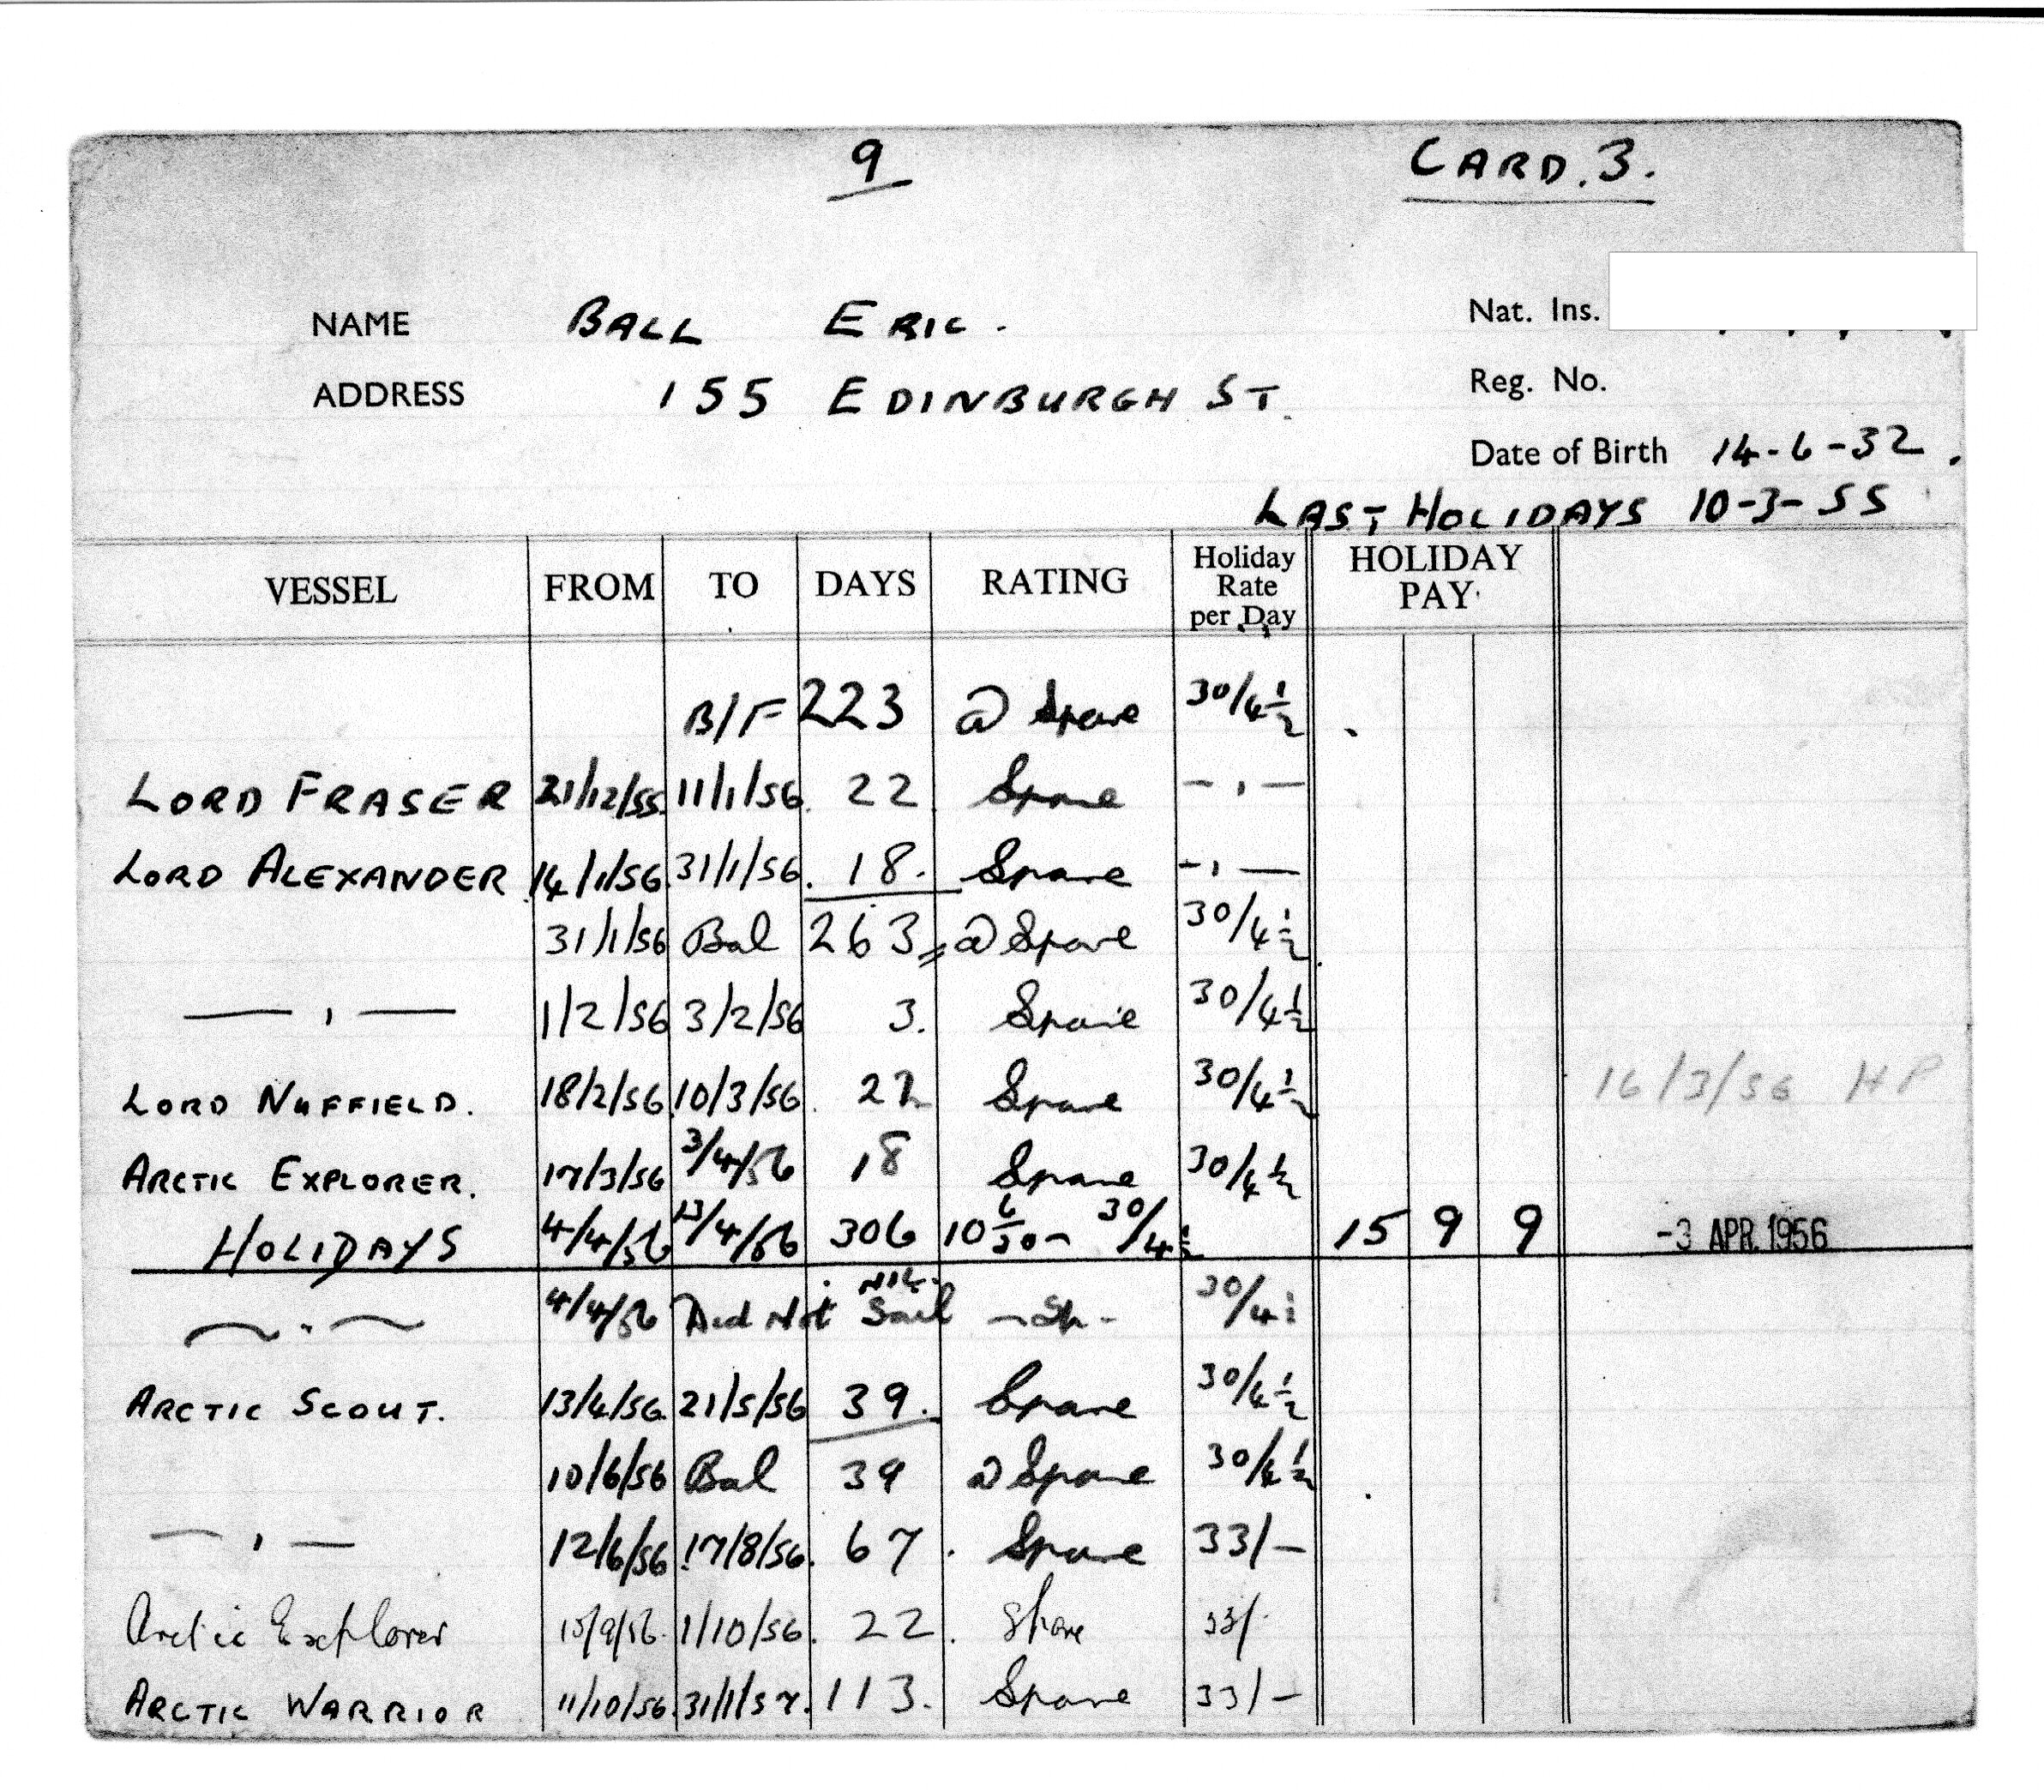 9 CARD.3.
Nat. Ins.
NAME BALL ERIC.
Reg. No.
ADDRESS 155 EDINBURGH ST.
Date of Birth 14-6-32.
LAST HOLIDAYS 10-3-55
VESSEL FROM TO DAYS RATING Holiday Rate per Day HOLIDAY PAY
B/F 223 @ Spare 30/4½
LORD FRASER 21/12/55 11/1/56 22 Spare — " —
LORD ALEXANDER 14/1/56 31/1/56 18. Spare — " —
31/1/56 Bal 263 @ Spare 30/4½
— " — 1/2/56 3/2/56 3. Spare 30/4½
LORD NUFFIELD. 18/2/56 10/3/56 22 Spare 30/4½ 16/3/56 HP
ARCTIC EXPLORER. 17/3/56 3/4/56 18 Spare 30/4½
HOLIDAYS 4/4/56 13/4/56 306 10 6/30 30/4½ 15 9 9 -3 APR. 1956
— " — 4/4/56 Did Not Sail NIL - Sp - 30/4½
ARCTIC SCOUT. 13/4/56 21/5/56 39. Spare 30/4½
10/6/56 Bal 39 @ Spare 30/4½
— " — 12/6/56 17/8/56. 67. Spare 33/-
Arctic Explorer 10/9/56. 1/10/56. 22. Spare 33/-
ARCTIC WARRIOR 11/10/56. 31/1/57. 113. Spare 33/-